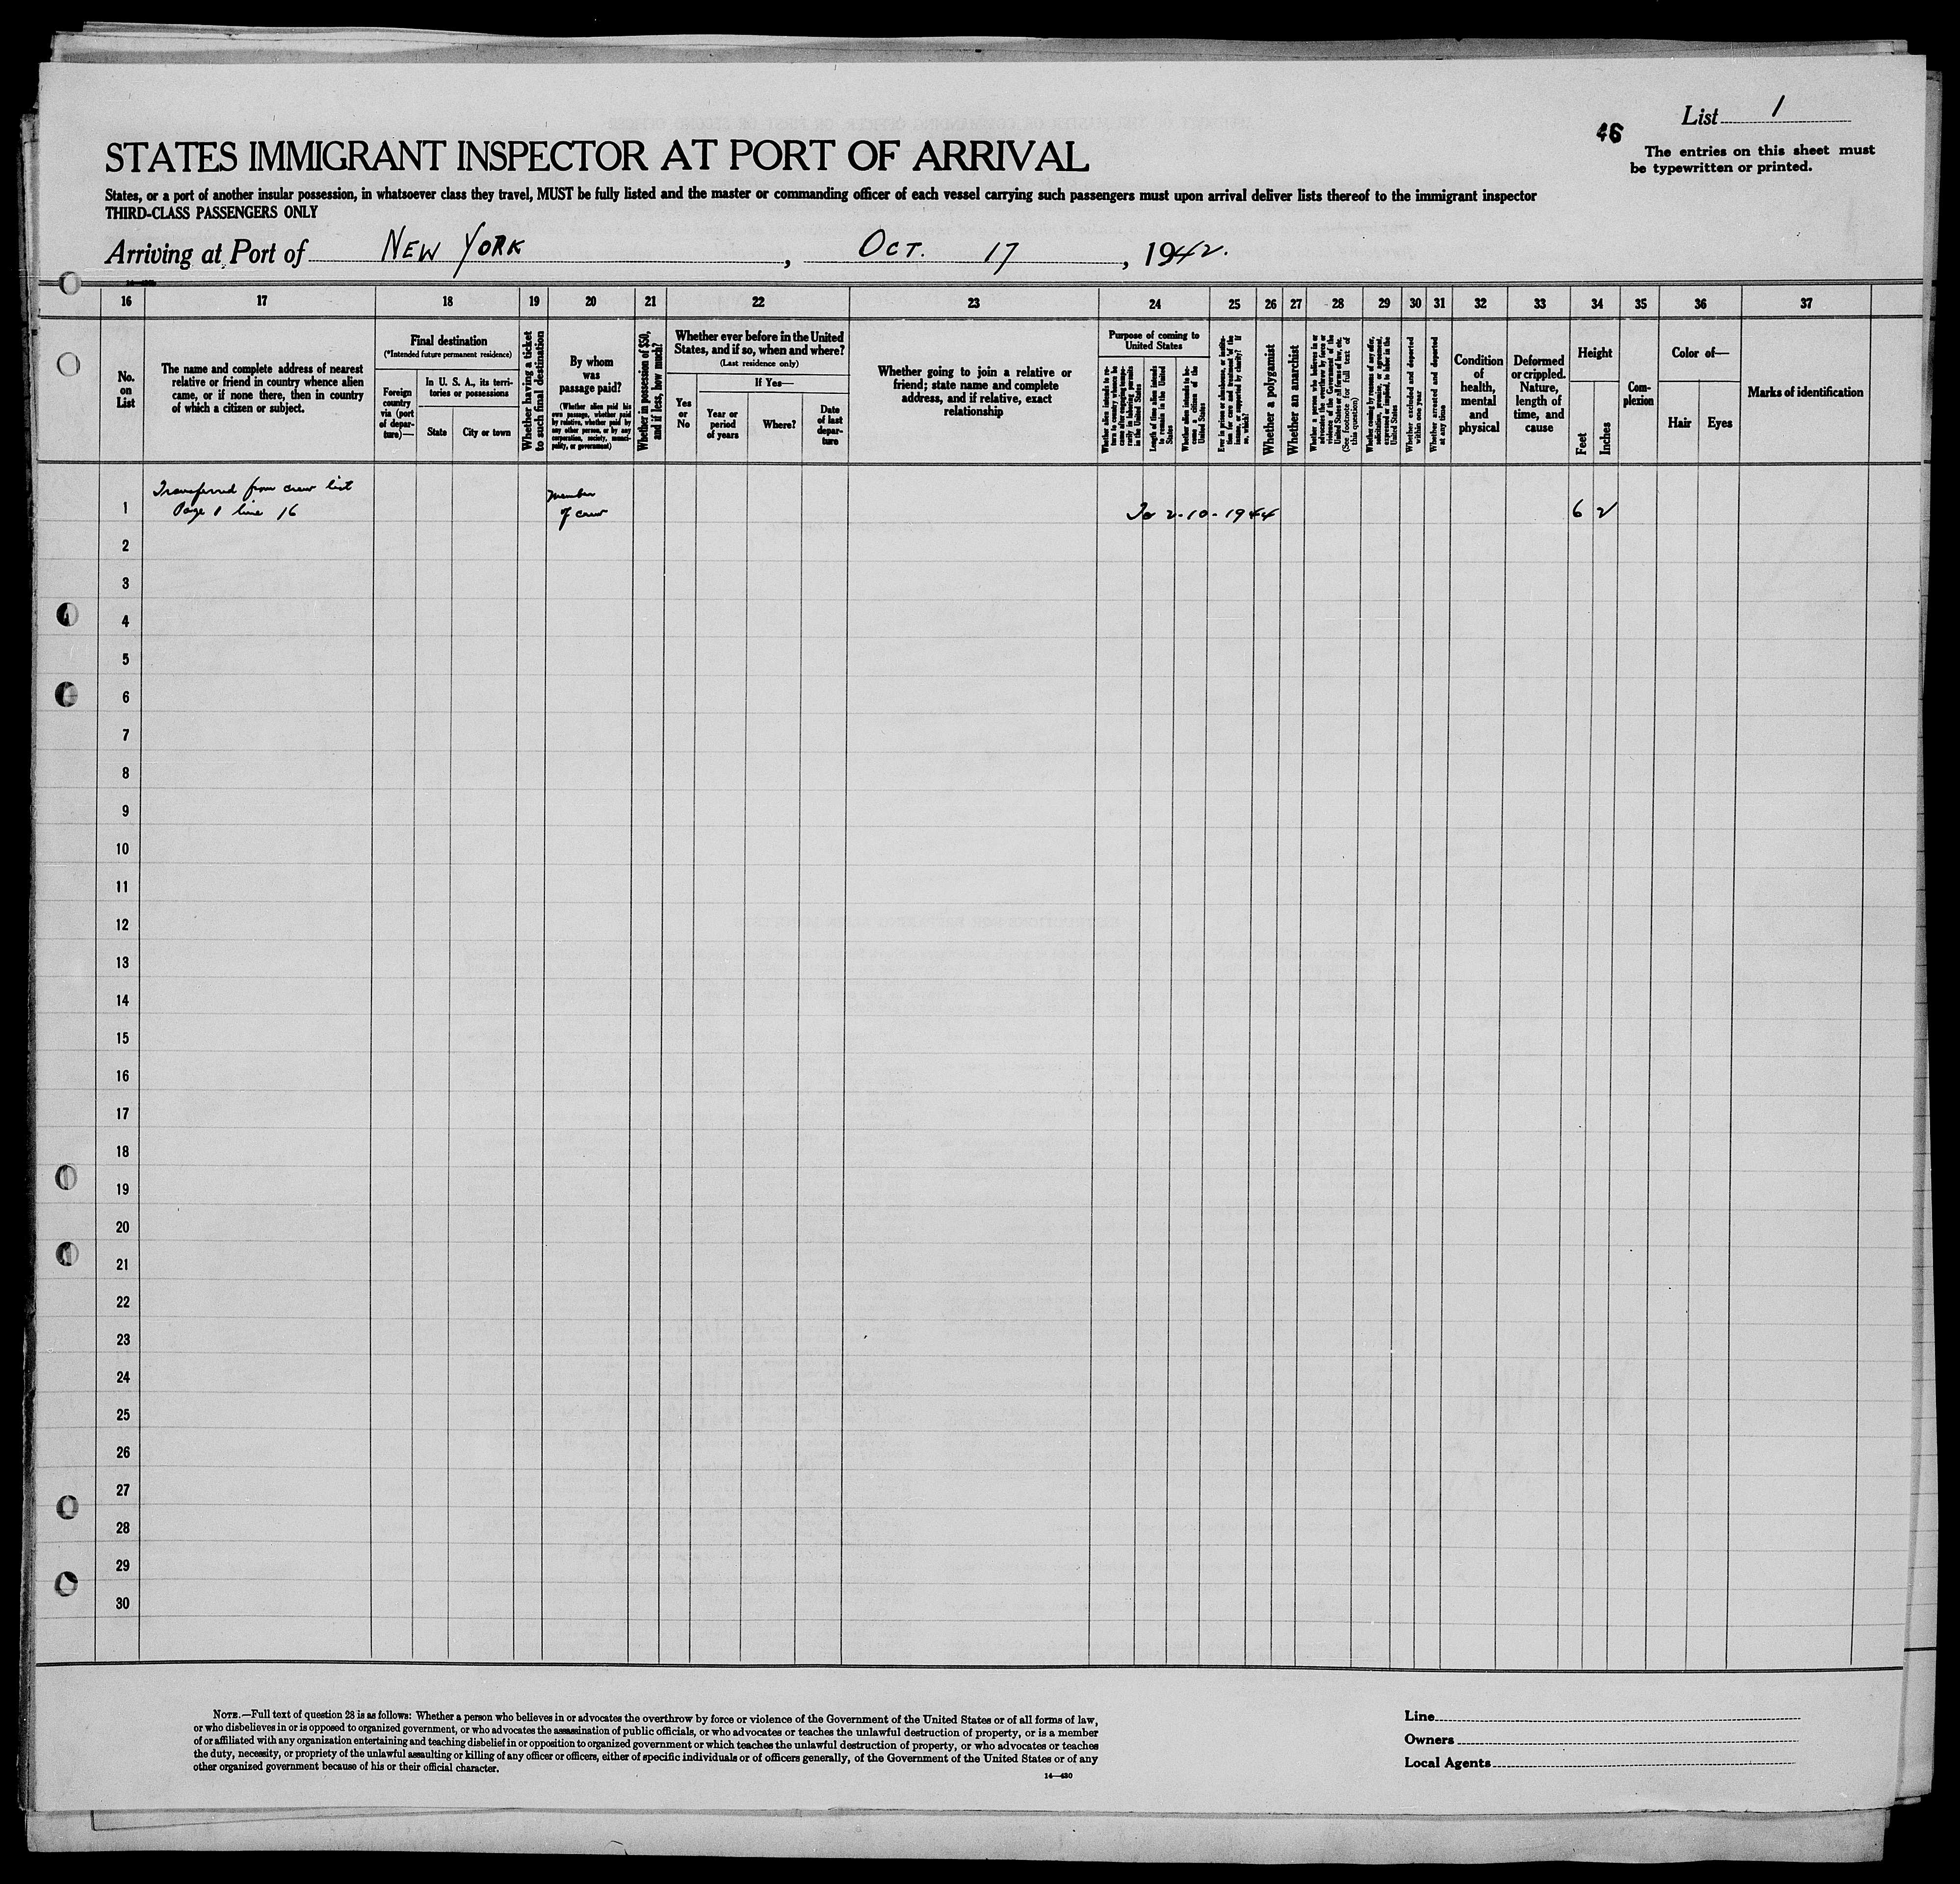 List 1
46
The entries on this sheet must
be typewritten or printed.
STATES IMMIGRANT INSPECTOR AT PORT OF ARRIVAL
States, or a port of another insular possession, in whatsoever class they travel, MUST be fully listed and the master or commanding officer of each vessel carrying such passengers must upon arrival deliver lists thereof to the immigrant inspector
THIRD-CLASS PASSENGERS ONLY
Arriving at Port of NEW YORK, OCT. 17, 1942.
16 17 18 19 20 21 22 23 24 25 26 27 28 29 30 31 32 33 34 35 36 37
No.
on
List
The name and complete address of nearest
relative or friend in country whence alien
came, or if none there, then in country
of which a citizen or subject.
Final destination
(*Intended future permanent residence)
Foreign
country
via (port
of depar-
ture)—
In U. S. A., its terri-
tories or possessions
State
City or town
Whether having a ticket
to such final destination
By whom
was
passage paid?
(Whether alien paid his
own passage, whether paid
by relative, whether paid by
any other person, or by any
corporation, society, munici-
pality, or government)
Whether in possession of $50,
and if less, how much?
Whether ever before in the United
States, and if so, when and where?
(Last residence only)
Yes
or
No
If Yes—
Year or
period
of years
Where?
Date
of last
depar-
ture
Whether going to join a relative or
friend; state name and complete
address, and if relative, exact
relationship
Purpose of coming to
United States
Whether alien intends to re-
turn to country whence he
came after engaging tempo-
rarily in laboring pursuits
in the United States
Length of time alien intends
to remain in the United
States
Whether alien intends to be-
come a citizen of the
United States
Ever in prison or almshouse, or institu-
tion for care and treatment of the
insane, or supported by charity? If
so, which?
Whether a polygamist
Whether an anarchist
Whether a person who believes in or
advocates the overthrow by force or
violence of the Government of the
United States or all forms of law, etc.
(See footnote for full text of
this question)
Whether coming by reasons of any offer,
solicitation, promise, or agreement,
expressed or implied, to labor in the
United States
Whether excluded and deported
within one year
Whether arrested and deported
at any time
Condition
of
health,
mental
and
physical
Deformed
or crippled.
Nature,
length of
time, and
cause
Height
Feet
Inches
Com-
plexion
Color of—
Hair
Eyes
Marks of identification
Transferred from crew list
Page 1 line 16
Member
of crew
1 To 2-10-1944 6 2
2
3
4
5
6
7
8
9
10
11
12
13
14
15
16
17
18
19
20
21
22
23
24
25
26
27
28
29
30
NOTE.—Full text of question 28 is as follows: Whether a person who believes in or advocates the overthrow by force or violence of the Government of the United States or of all forms of law,
or who disbelieves in or is opposed to organized government, or who advocates the assassination of public officials, or who advocates or teaches the unlawful destruction of property, or is a member
of or affiliated with any organization entertaining and teaching disbelief in or opposition to organized government or which teaches the unlawful destruction of property, or who advocates or teaches
the duty, necessity, or propriety of the unlawful assaulting or killing of any officer or officers, either of specific individuals or of officers generally, of the Government of the United States or of any
other organized government because of his or their official character.
14—430
Line
Owners
Local Agents